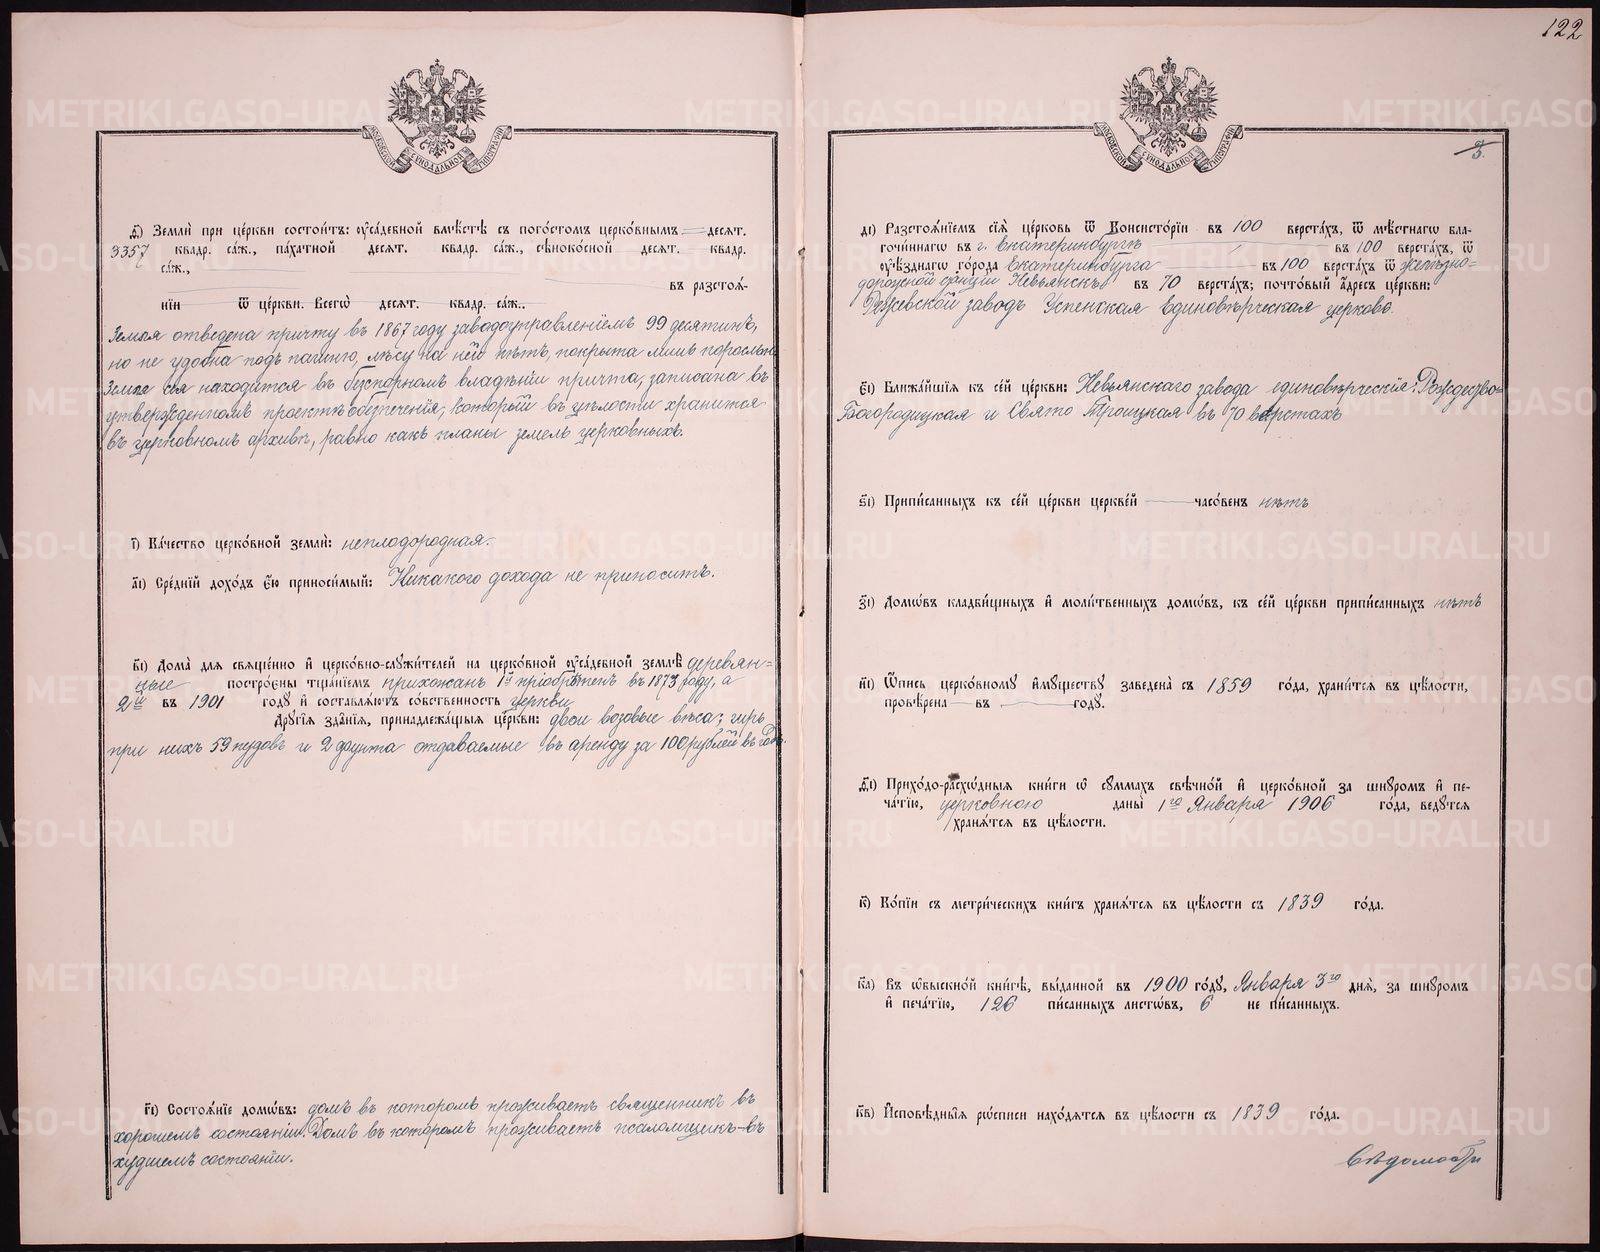 122
3.
МОСКОВСКОЙ СѴНОДАЛЬНОЙ ТИПОГРАФІИ
ѳ҃) Землѝ при це́ркви состои́тъ: оуса́дебной вмѣ́стѣ съ пого́стомъ церко́внымъ — десѧт.
3357 квадр. са́ж., па́хатной десѧт. квадр. са́ж., сѣноко́сной десѧт. квадр.
са́ж.,
въ разстоѧ-
нїи ѿ це́ркви. Всегѡ̀ десѧт. квадр. са́ж..
Земля отведена причту въ 1867 году заводоуправленіемъ 99 десятинъ,
но не удобна подъ пашню, лѣсу на ней нѣтъ, покрыта лишь порослью.
Земля сія находится въ безспорномъ владѣніи причта, записана въ
утвержденномъ проектѣ обезпеченія, который въ цѣлости хранится
въ церковномъ архивѣ, равно какъ планы земель церковныхъ.
і҃) Ка́чество церко́вной землѝ: неплодородная.
а҃і) Сре́днїй дохо́дъ е́ю приноси́мый: Никакого дохода не приноситъ.
в҃і) Дома̀ для свѧще́нно и҆ церко́вно-слꙋжи́телей на церко́вной оуса́дебной землѣ̀ деревян=
ные постро́ены тща́нїемъ прихожанъ 1й пріобрѣтенъ въ 1873 году, а
2й въ 1901 годꙋ и҆ составлѧ́ютъ со́бственность церкви
Дрꙋгі́ѧ зда́нїѧ, принадлежа́щыѧ це́ркви: двои возовые вѣса; гирь
при нихъ 59 пудовъ и 2 фунта отдаваемые въ аренду за 100 рублей въ годъ.
г҃і) Состоѧ́нїе домѡ́въ: домъ въ которомъ проживаетъ священникъ въ
хорошемъ состояніи. Домъ въ которомъ проживаетъ псаломщикъ—въ
худшемъ состояніи.
МОСКОВСКОЙ СѴНОДАЛЬНОЙ ТИПОГРАФІИ
д҃і) Разстоѧ́нїемъ сїѧ̀ це́рковь ѿ Консисто́рїи въ 100 верста́хъ, ѿ мѣ́стнагѡ бла-
гочи́ннагѡ въ г. Екатеринбургѣ въ 100 верста́хъ, ѿ
оуѣ́зднагѡ го́рода Екатеринбурга въ 100 верста́хъ ѿ желѣзно=
дорожной станціи Невьянскъ въ 70 верста́хъ; почто́вый а҆́дресъ це́ркви:
Режевской заводъ Успенская Единовѣрческая церковь.
е҃і) Ближа́йшїѧ къ се́й це́ркви: Невьянскаго завода единовѣрческія: Рождество=
Богородицкая и Свято Троицкая въ 70 верстахъ
ѕ҃і) Припи́санныхъ къ се́й це́ркви церкве́й — часо́венъ нѣтъ
з҃і) Домѡ́въ кладби́щныхъ и҆ моли́твенныхъ домѡ́въ, къ се́й це́ркви припи́санныхъ нѣтъ
и҃і) Ѻ҆́пись церко́вномꙋ и҆мꙋ́ществꙋ заведена̀ съ 1859 го́да, храни́тсѧ въ цѣ́лости,
провѣ́рена — въ — го́дꙋ.
ѳ҃і) Прихо́до-расхѡ́дныѧ кни́ги ѡ҆ сꙋ́ммахъ свѣчно́й и҆ церко́вной за шнꙋро́мъ и҆ пе-
ча́тїю, церковною даны̀ 1го Января 1906 го́да, ведꙋ́тсѧ
/хранѧ́тсѧ въ цѣ́лости.
к҃) Ко́пїи съ метри́ческихъ кни́гъ хранѧ́тсѧ въ цѣ́лости съ 1839 го́да.
к҃а) Въ ѡ҆быскно́й кни́гѣ, вы́данной въ 1900 го́дꙋ, Января 3го днѧ̀, за шнꙋро́мъ
и҆ печа́тїю, 126 пи́санныхъ листѡ́въ, 6 не пи́санныхъ.
к҃в) И҆сповѣ́дныѧ рѡ́списи нахо́дѧтсѧ въ цѣ́лости съ 1839 го́да.
Вѣдомости
METRIKI.GASO-URAL.RU